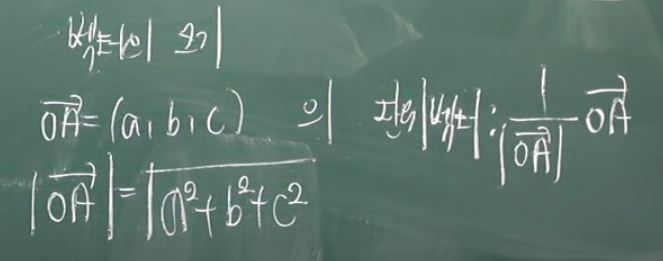 벡터의 크기
$\overrightarrow{OA}=(a, b, c)$ 의 단위벡터: $\frac{1}{|\overrightarrow{OA}|}\overrightarrow{OA}$
$|\overrightarrow{OA}|=\sqrt{a^2+b^2+c^2}$